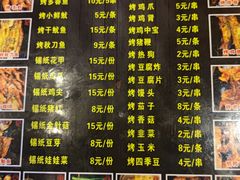 烤多春鱼 10元/条
烤小鲫鱼 5元/条
烤干鱿鱼 15元/份
烤秋刀鱼 9元/条
锡纸花甲 15元/份
锡纸鸡尖 15元/份
锡纸猪红 8元/份
锡纸金针菇 15元/份
锡纸豆芽 8元/份
锡纸娃娃菜 8元/份
烤鸡爪 5元/串
烤鸡胃 5元/串
烤鸡中宝 4元/串
烤猪鞭 5元/串
烤热狗 2元/串
烤豆腐炸 2元/串
烤豆腐片 2元/串
烤馒头 3元/串
烤茄子 8元/条
烤香菇 4元/串
烤韭菜 2元/串
烤玉米 8元/条
烤四季豆 4元/串